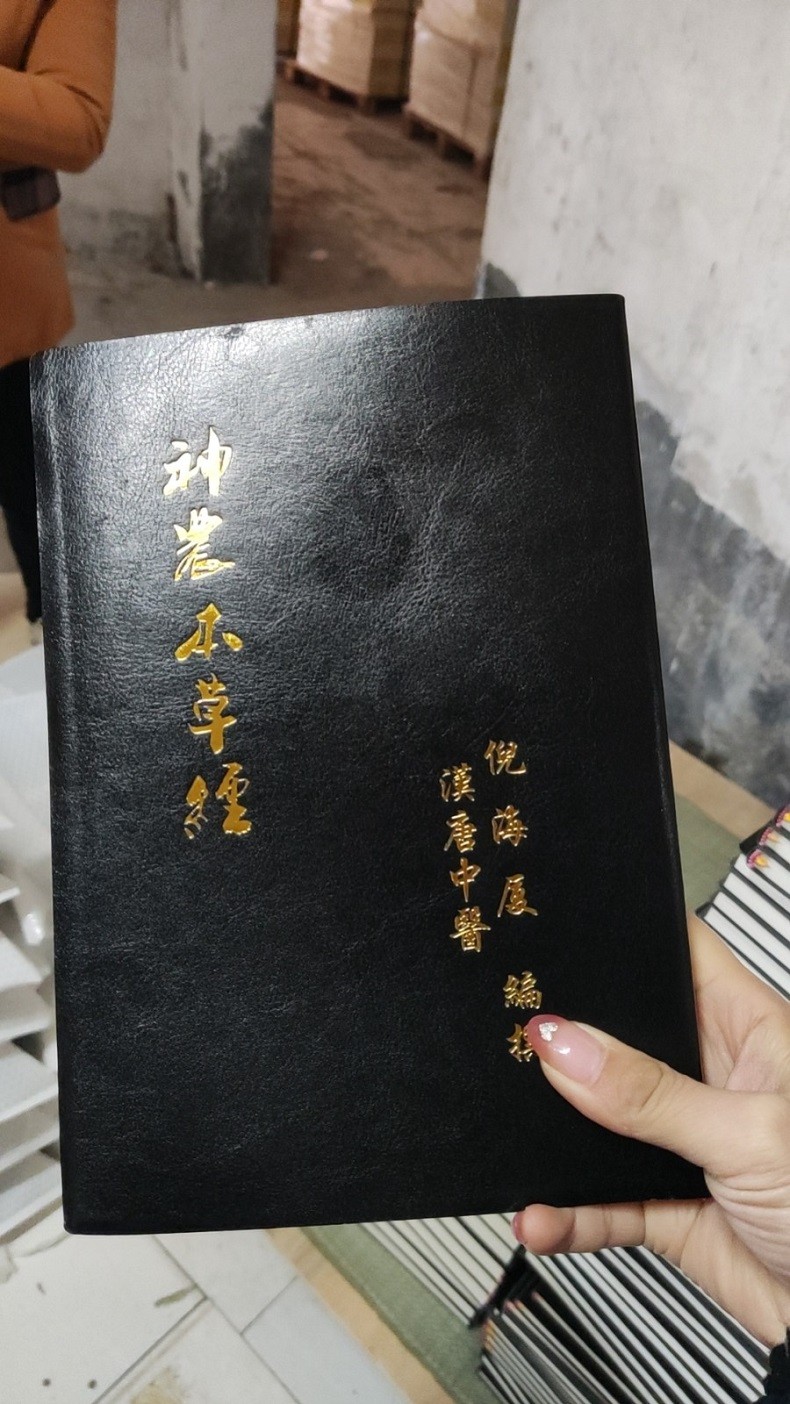 神農本草經
漢唐中醫
倪海厦 編撰